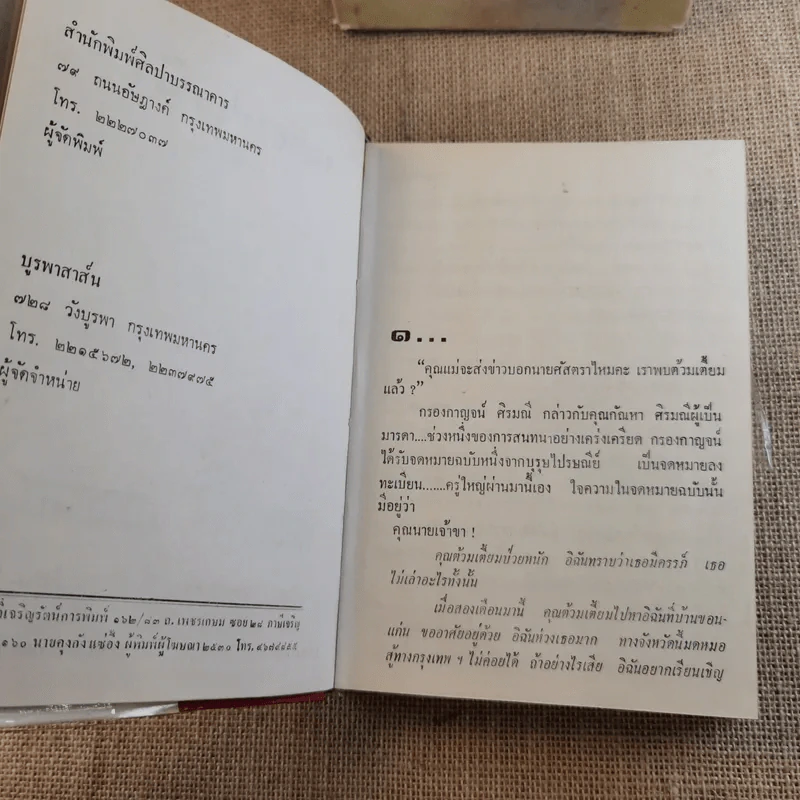 สำนักพิมพ์ศิลปาบรรณาคาร
๗๙ ถนนอัษฎางค์ กรุงเทพมหานคร
โทร. ๒๒๒๗๐๓๗
ผู้จัดพิมพ์
บูรพาสาส์น
๗๒๘ วังบูรพา กรุงเทพมหานคร
โทร. ๒๒๑๕๖๗๒, ๒๒๓๗๙๗๕
ผู้จัดจำหน่าย
เจริญรัตน์การพิมพ์ ๑๖๒/๘๓ ถ. เพชรเกษม ซอย ๒๘ ภาษีเจริญ
๑๖๐ นายคุงกัง แซ่อึ้ง ผู้พิมพ์ผู้โฆษณา ๒๕๓๐ โทร.
๑...
“คุณแม่จะส่งข่าวบอกนายศัสตราไหมคะ เราพบต้วมเตี้ยม
แล้ว ?”
กรองกาญจน์ ศิรมณี กล่าวกับคุณกัณหา ศิรมณีผู้เป็น
มารดา....ช่วงหนึ่งของการสนทนาอย่างเคร่งเครียด กรองกาญจน์
ได้รับจดหมายฉบับหนึ่งจากบุรุษไปรษณีย์ เป็นจดหมายลง
ทะเบียน.......ครู่ใหญ่ผ่านมานี้เอง ใจความในจดหมายฉบับนั้น
มีอยู่ว่า
คุณนายเจ้าขา !
คุณต้วมเตี้ยมป่วยหนัก อิฉันทราบว่าเธอมีครรภ์ เธอ
ไม่เล่าอะไรทั้งนั้น
เมื่อสองเดือนมานี้ คุณต้วมเตี้ยมไปหาอิฉันที่บ้านขอน-
แก่น ขออาศัยอยู่ด้วย อิฉันห่วงเธอมาก ทางจังหวัดนี้มดหมอ
สู้ทางกรุงเทพ ฯ ไม่ค่อยได้ ถ้าอย่างไรเสีย อิฉันอยากเรียนเชิญ